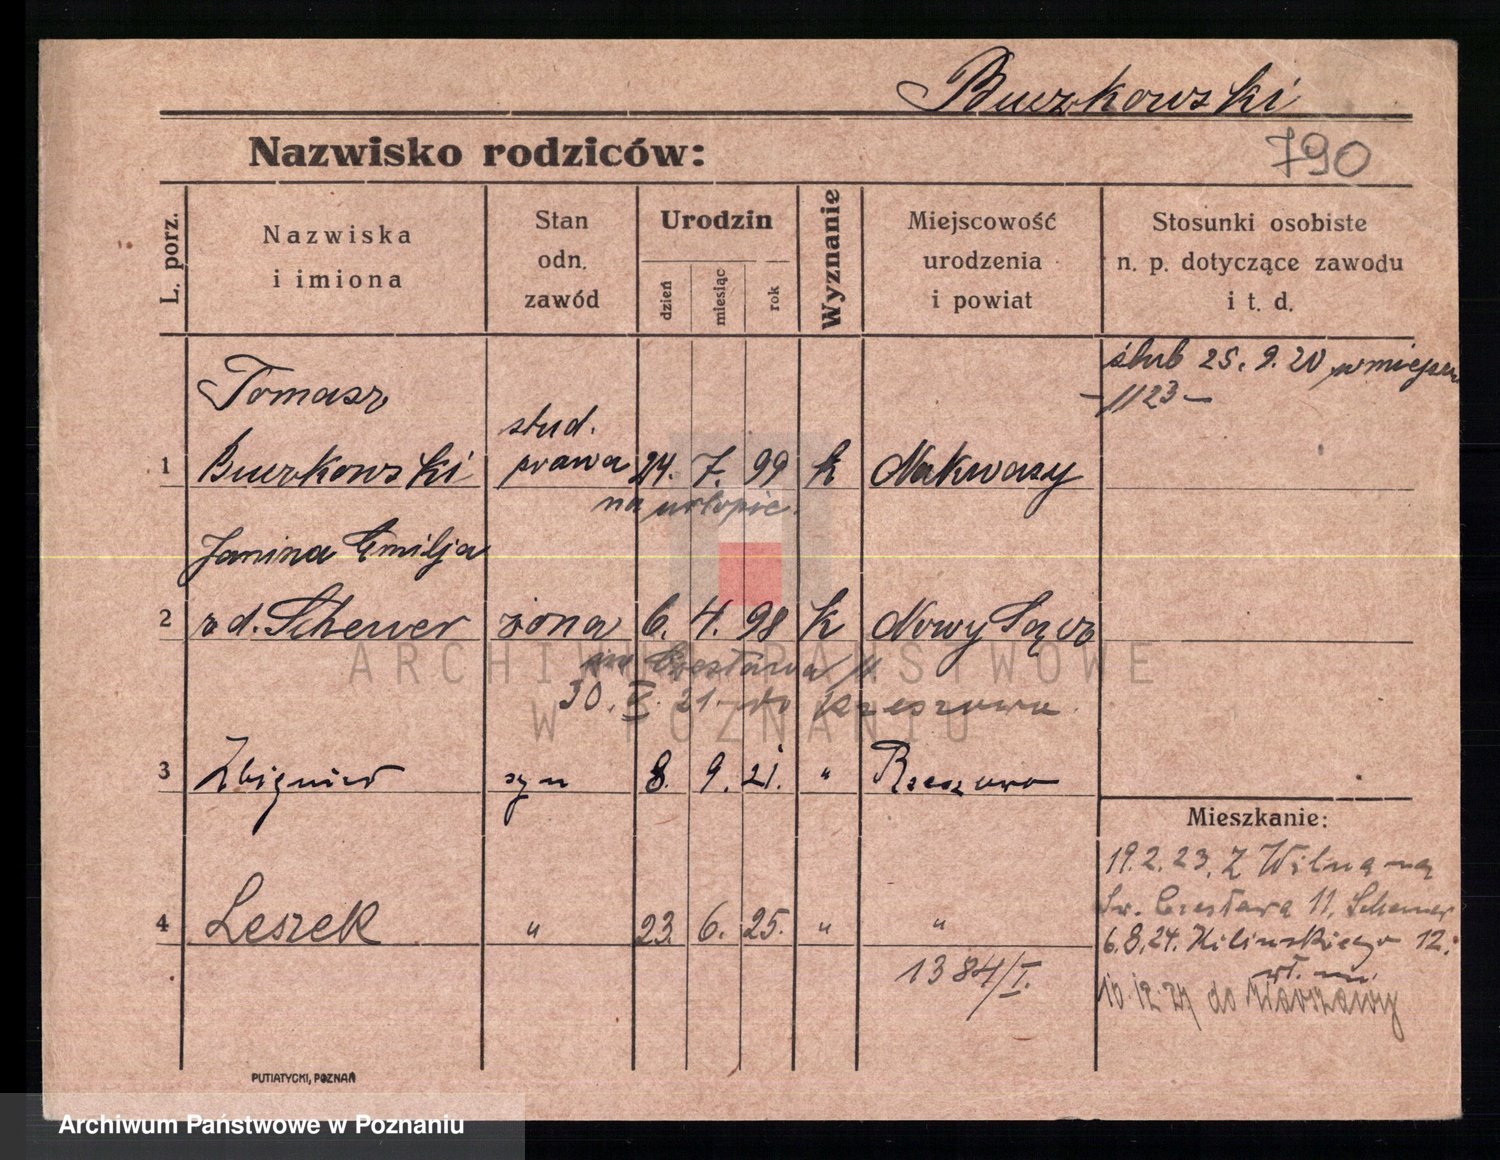 Buczkowski
Nazwisko rodziców:
790
L. porz.
Nazwiska
i imiona
Stan
odn.
zawód
Urodzin
dzień
miesiąc
rok
Wyznanie
Miejscowość
urodzenia
i powiat
Stosunki osobiste
n. p. dotyczące zawodu
i t. d.
ślub 25. 9. 20 w miejscu
-1123-
Tomasz
stud.
1 Buczkowski prawa 24. 7. 99 k Nakwasy
na urlopie.
Janina Emilja
2 z d. Scheuer żona 6. 4. 98 k Nowy Sącz
Czesława 11
30. X. 21. do Rzeszowa
3 Zbigniew syn 8. 9. 21. " Rzeszowo
Mieszkanie:
19.2.23. z Wilna na
Św. Czesława 11, Scheuer
4 Leszek " 23. 6. 25. " "
6.8.24. Kilińskiego 12.
1384/I.
10.12.27 do Warszawy
PUTIATYCKI, POZNAŃ
ARCHIWUM PAŃSTWOWE
W POZNANIU
Archiwum Państwowe w Poznaniu